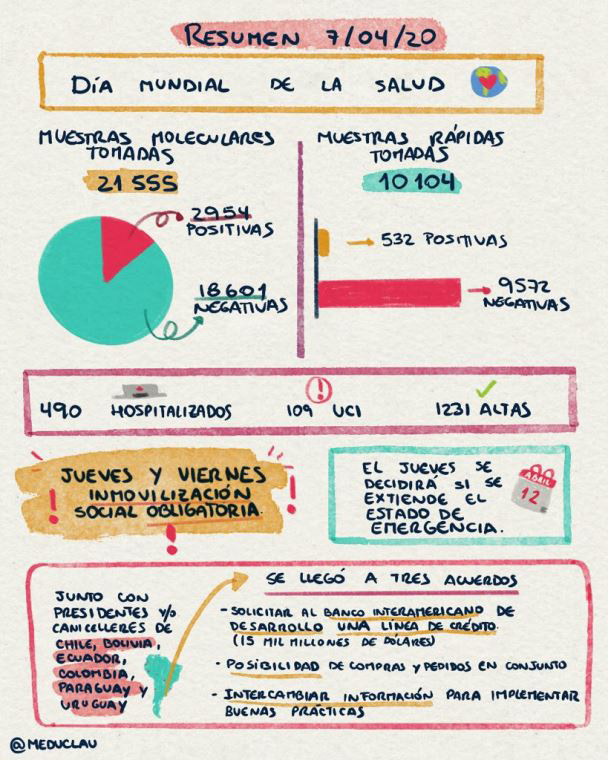 RESUMEN 7/04/20
DÍA MUNDIAL DE LA SALUD
MUESTRAS MOLECULARES
TOMADAS
21 555
2954
POSITIVAS
18601
NEGATIVAS
MUESTRAS RÁPIDAS
TOMADAS
10 104
532 POSITIVAS
9572
NEGATIVAS
490 HOSPITALIZADOS
109 UCI
1231 ALTAS
JUEVES Y VIERNES
INMOVILIZACIÓN
SOCIAL OBLIGATORIA.
EL JUEVES SE
DECIDIRÁ SI SE
EXTIENDE EL
ESTADO DE
EMERGENCIA.
ABRIL
12
JUNTO CON
PRESIDENTES Y/O
CANCILLERES DE
CHILE, BOLIVIA,
ECUADOR,
COLOMBIA,
PARAGUAY Y
URUGUAY
SE LLEGÓ A TRES ACUERDOS
- SOLICITAR AL BANCO INTERAMERICANO DE
DESARROLLO UNA LÍNEA DE CRÉDITO.
(15 MIL MILLONES DE DÓLARES)
- POSIBILIDAD DE COMPRAS Y PEDIDOS EN CONJUNTO
- INTERCAMBIAR INFORMACIÓN PARA IMPLEMENTAR
BUENAS PRÁCTICAS
@MEDUCLAU